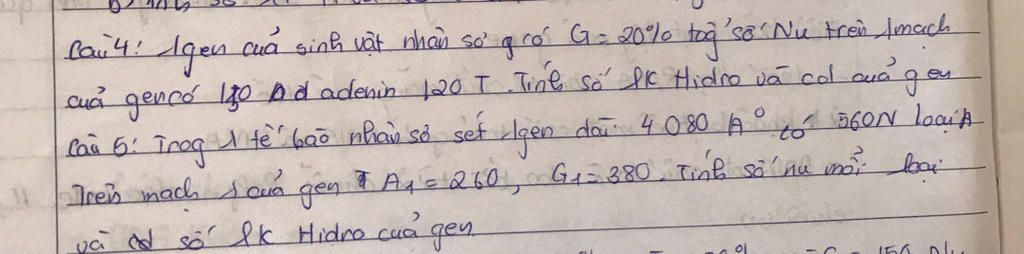 Câu 4: 1gen của sinh vật nhân sơ g có G = 20% tog số Nu trên 1mach
của gen có 150 adenin 120 T. Tính số lk Hidro và cd của gen
Câu 5: Trog 1 tế bào nhân sơ sét 1gen dài 4080 A° có 560N loại A
Trên mạch 1 của gen A1 = 260, G1 = 380. Tính số nu mỗi loại
và số lk Hidro của gen